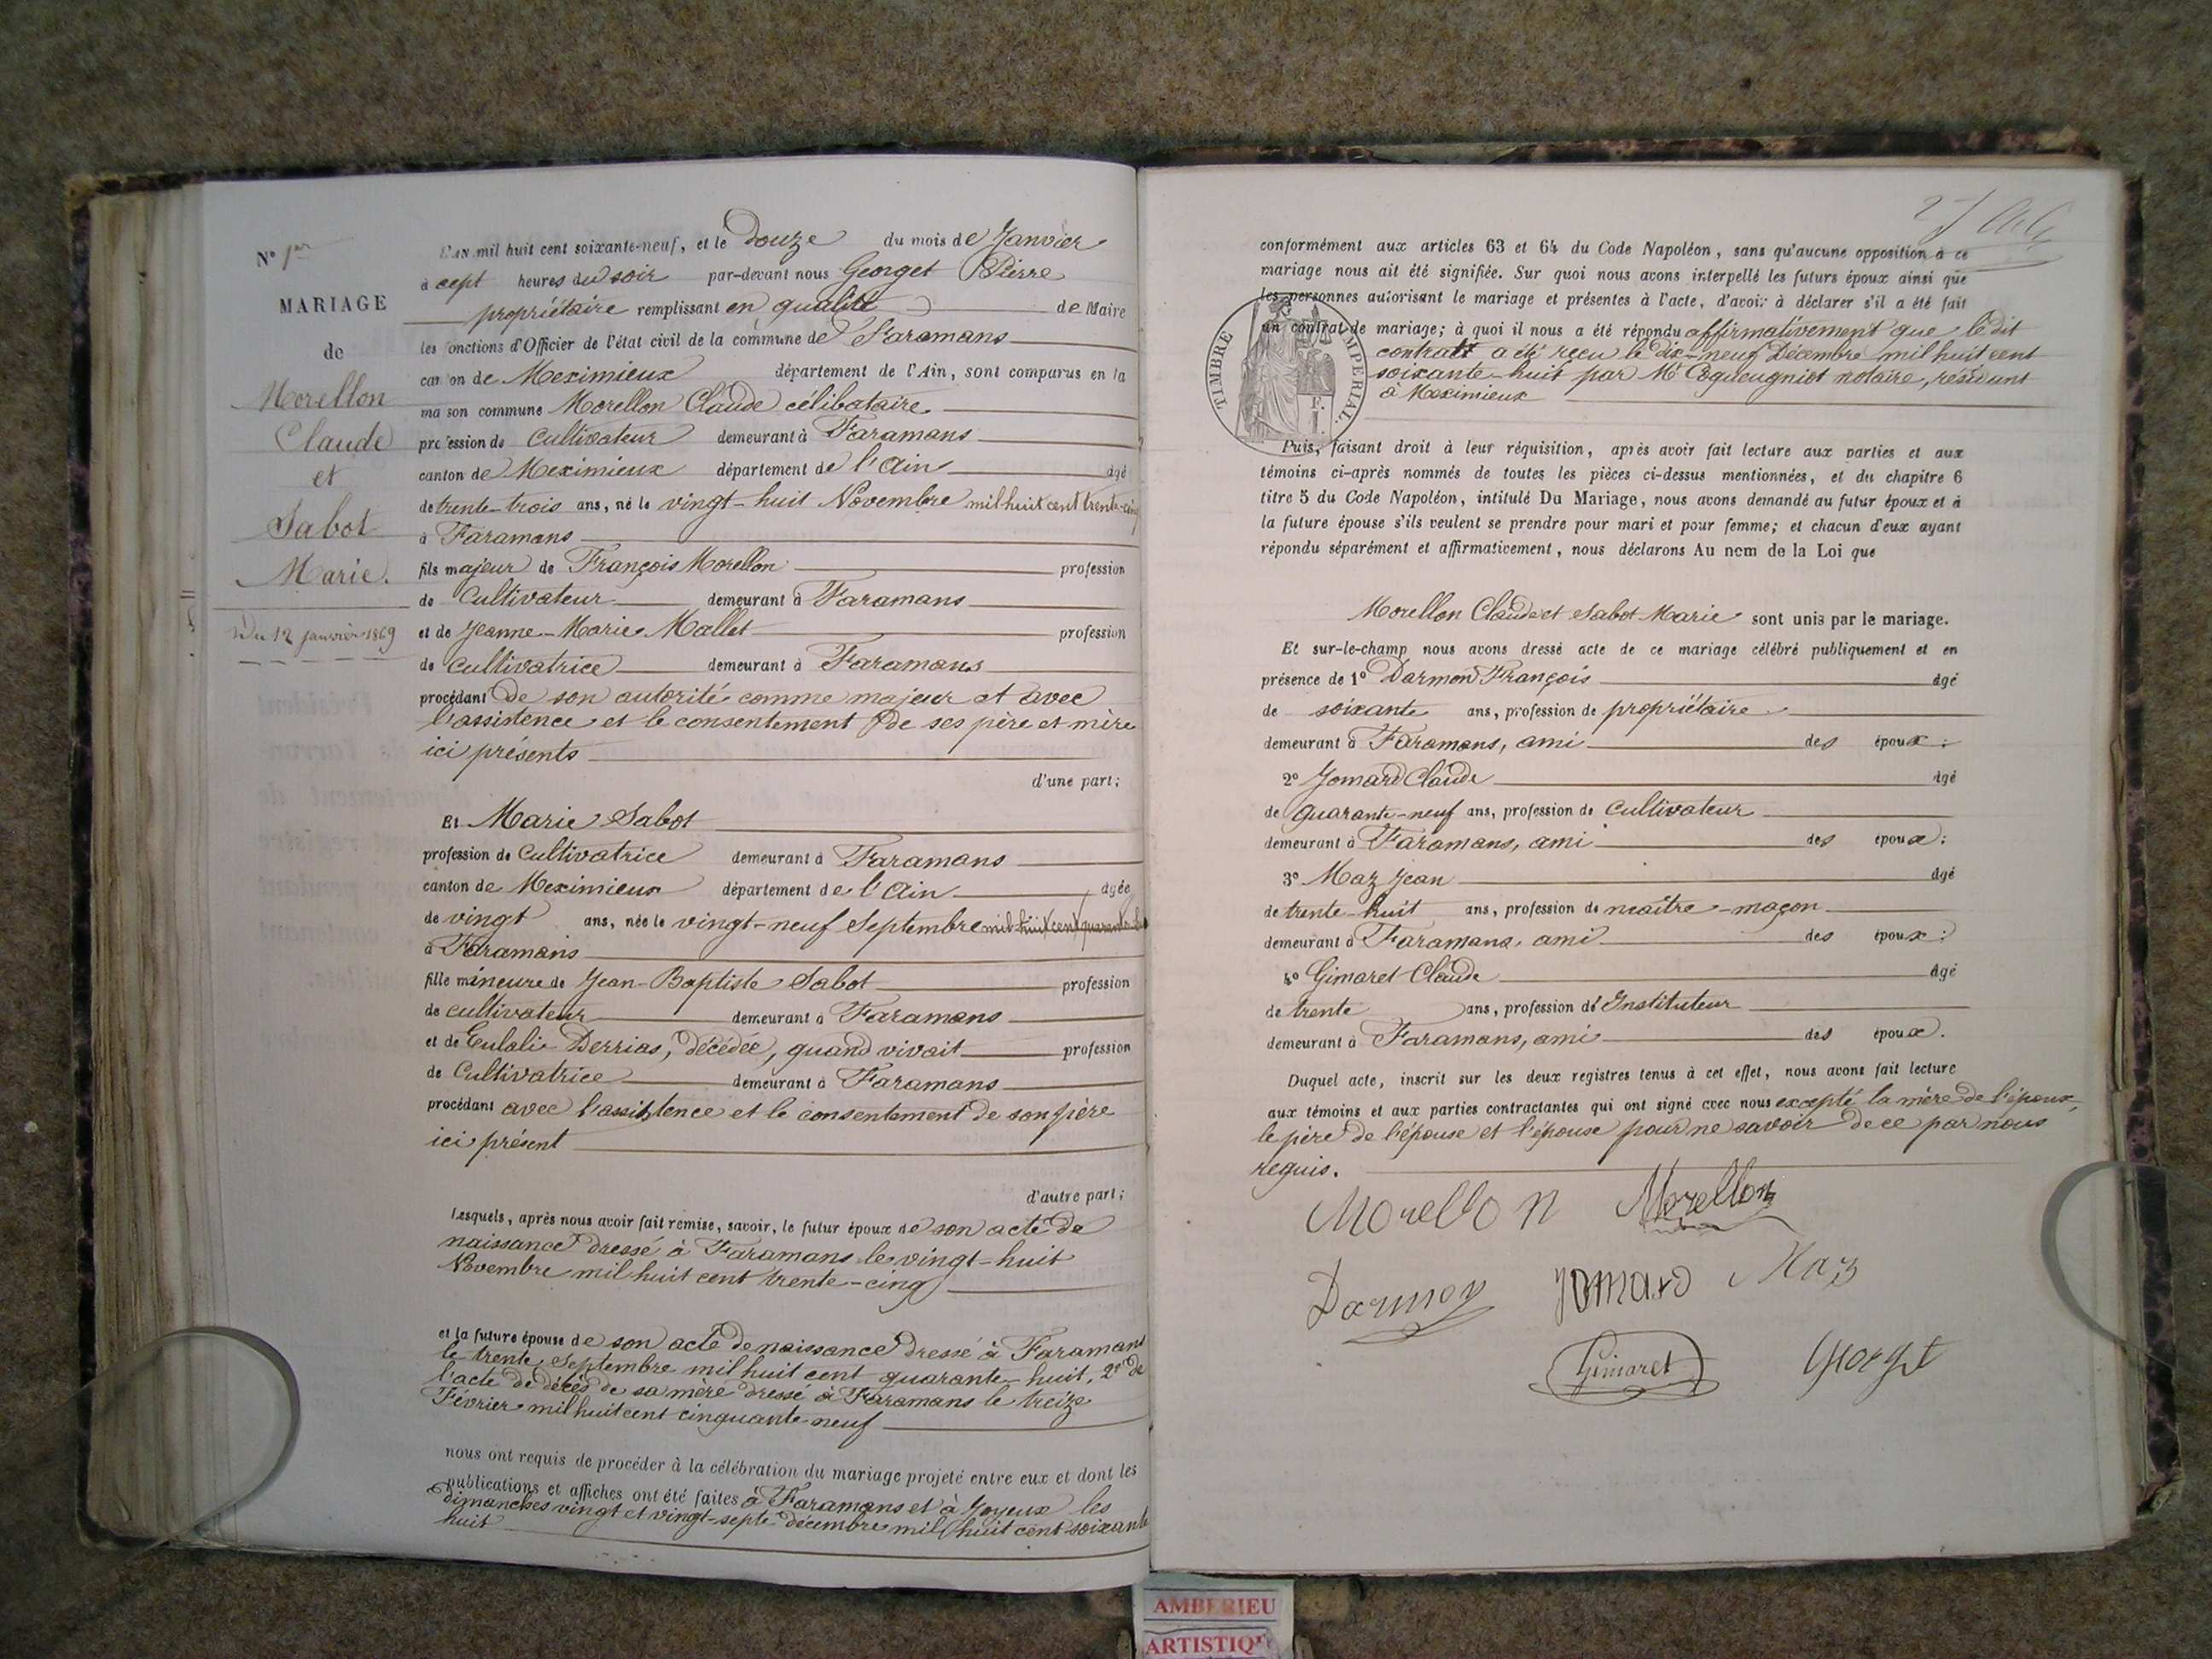 N° 1er
MARIAGE
de
Morellon
Claude
et
Sabot
Marie.
Du 12 janvier 1869
L'AN mil huit cent soixante-neuf, et le Douze du mois de Janvier
à sept heures du soir par-devant nous Georget Pierre
propriétaire remplissant en qualité de Maire
les fonctions d'Officier de l'état civil de la commune de Faramans
canton de Meximieux département de l'Ain, sont comparus en la
maison commune Morellon Claude célibataire
profession de Cultivateur demeurant à Faramans
canton de Meximieux département de l'Ain âgé
de trente-trois ans, né le vingt-huit Novembre mil huit cent trente-cinq
à Faramans
fils majeur de François Morellon profession
de Cultivateur demeurant à Faramans
et de Jeanne-Marie Mallet profession
de cultivatrice demeurant à Faramans
procédant de son autorité comme majeur et avec
l'assistence et le consentement de ses père et mère
ici présents
d'une part;
Et Marie Sabot
profession de Cultivatrice demeurant à Faramans
canton de Meximieux département de l'Ain âgée
de vingt ans, née le vingt-neuf Septembre mil huit cent quarante-huit
à Faramans
fille mineure de Jean-Baptiste Sabot profession
de cultivateur demeurant à Faramans
et de Eulalie Derrias, décédée, quand vivait profession
de Cultivatrice demeurant à Faramans
procédant avec l'assistence et le consentement de son père
ici présent
d'autre part;
Lesquels, après nous avoir fait remise, savoir, le futur époux de son acte de
naissance dressé à Faramans le vingt-huit
Novembre mil huit cent trente-cinq
et la future épouse de son acte de naissance dressé à Faramans
le trente Septembre mil huit cent quarante-huit, 2° de
l'acte de décès de sa mère dressé à Faramans le treize
Février mil huit cent cinquante-neuf
nous ont requis de procéder à la célébration du mariage projeté entre eux et dont les
publications et affiches ont été faites à Faramans et à Joyeux les
dimanches vingt et vingt-sept décembre mil huit cent soixante
huit
conformément aux articles 63 et 64 du Code Napoléon, sans qu'aucune opposition à ce
mariage nous ait été signifiée. Sur quoi nous avons interpellé les futurs époux ainsi que
les personnes autorisant le mariage et présentes à l'acte, d'avoir à déclarer s'il a été fait
un contrat de mariage; à quoi il nous a été répondu affirmativement que le dit
contrat a été reçu le dix-neuf Décembre mil huit cent
soixante-huit par Me Cogueugniot notaire, résidant
à Meximieux
TIMBRE IMPERIAL.
Puis, faisant droit à leur réquisition, après avoir fait lecture aux parties et aux
témoins ci-après nommés de toutes les pièces ci-dessus mentionnées, et du chapitre 6
titre 5 du Code Napoléon, intitulé Du Mariage, nous avons demandé au futur époux et à
la future épouse s'ils veulent se prendre pour mari et pour femme; et chacun d'eux ayant
répondu séparément et affirmativement, nous déclarons Au nom de la Loi que
Morellon Claude et Sabot Marie sont unis par le mariage.
Et sur-le-champ nous avons dressé acte de ce mariage célébré publiquement et en
présence de 1° Darmon François âgé
de soixante ans, profession de propriétaire
demeurant à Faramans, ami des époux;
2° Jomard Claude âgé
de quarante-neuf ans, profession de Cultivateur
demeurant à Faramans, ami des époux;
3° Maz Jean âgé
de trente-huit ans, profession de maître-maçon
demeurant à Faramans, ami des époux;
4° Gimaret Claude âgé
de trente ans, profession d'Instituteur
demeurant à Faramans, ami des époux.
Duquel acte, inscrit sur les deux registres tenus à cet effet, nous avons fait lecture
aux témoins et aux parties contractantes qui ont signé avec nous excepté la mère de l'époux,
le père de l'épouse et l'épouse pour ne savoir de ce par nous
requis.
Morellon Morellon
Darmon Jomard Maz
Gimaret Georget
AMBERIEU
ARTISTIQUE